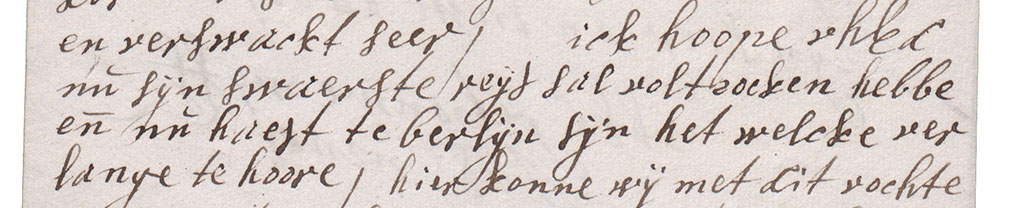 en verswackt seer / ick hoope vhkd
nu sijn swaerste reijs sal voltrocken hebbe
en nu haest te berlijn sijn het welcke ver
lange te hoore / hier konne wij met dit vochte